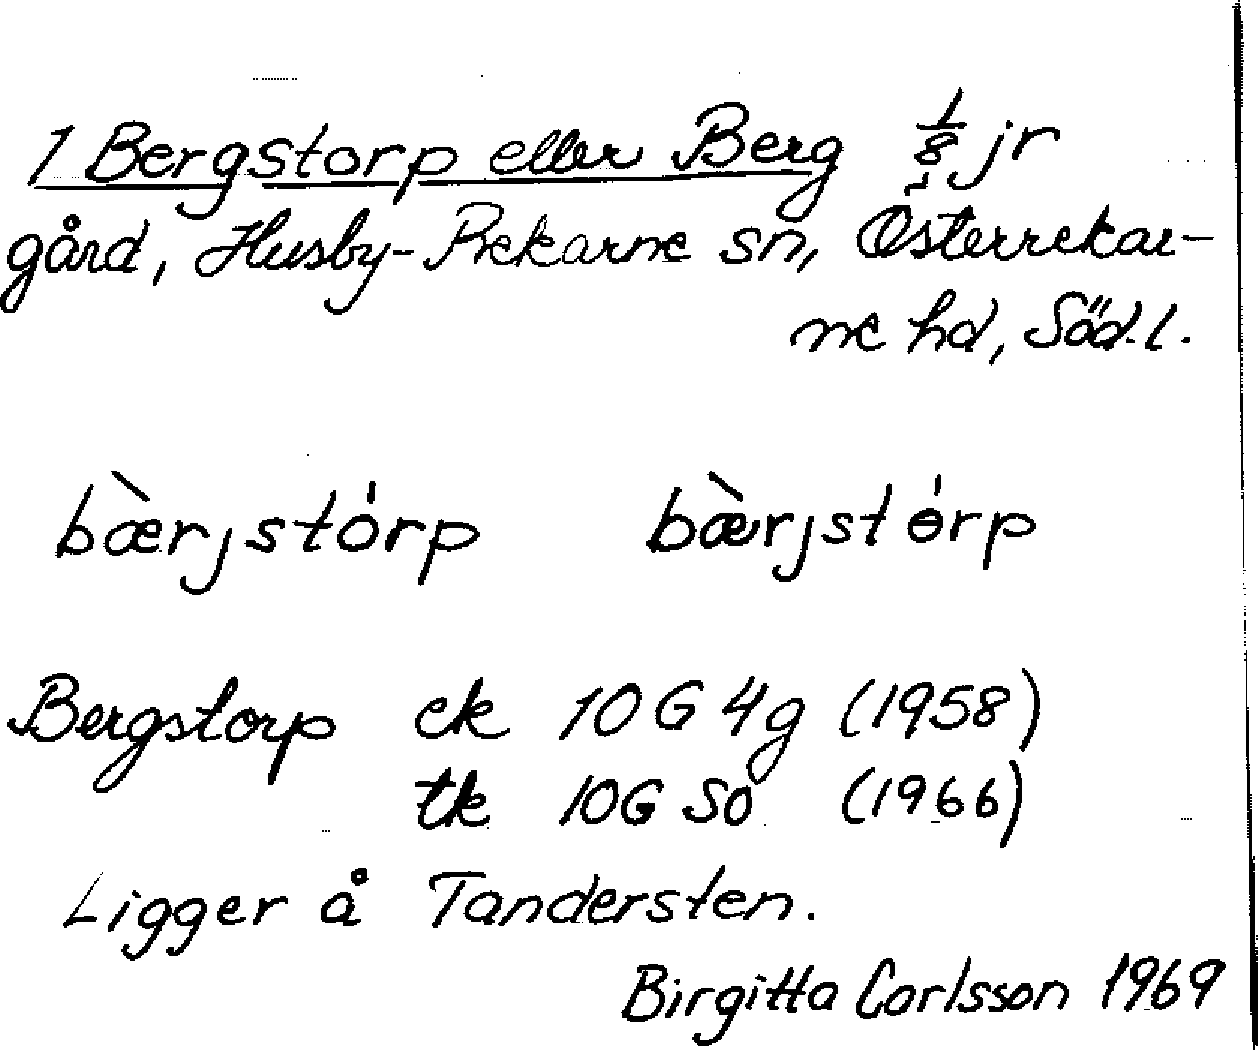 1 Bergstorp eller Berg 1/8 jr
gård, Husby-Rekarne sn, Österrekar-
ne hd, Söd.l.
bæ̀rjstórp bæ̀rjstɵ́rp
Bergstorp ek 10G 4g (1958)
tk 10G SO (1966)
Ligger å Tandersten.
Birgitta Carlsson 1969